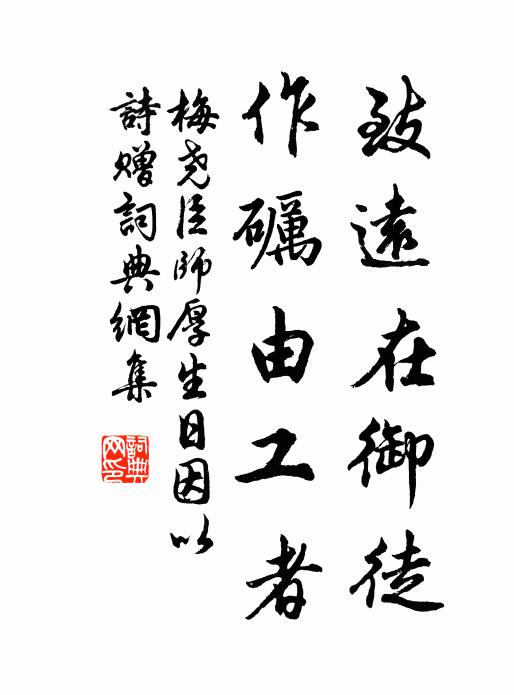 致遠在御徒
作礪由工者
梅尧臣師厚生日因以
詩贈詞典網集
詞典網印